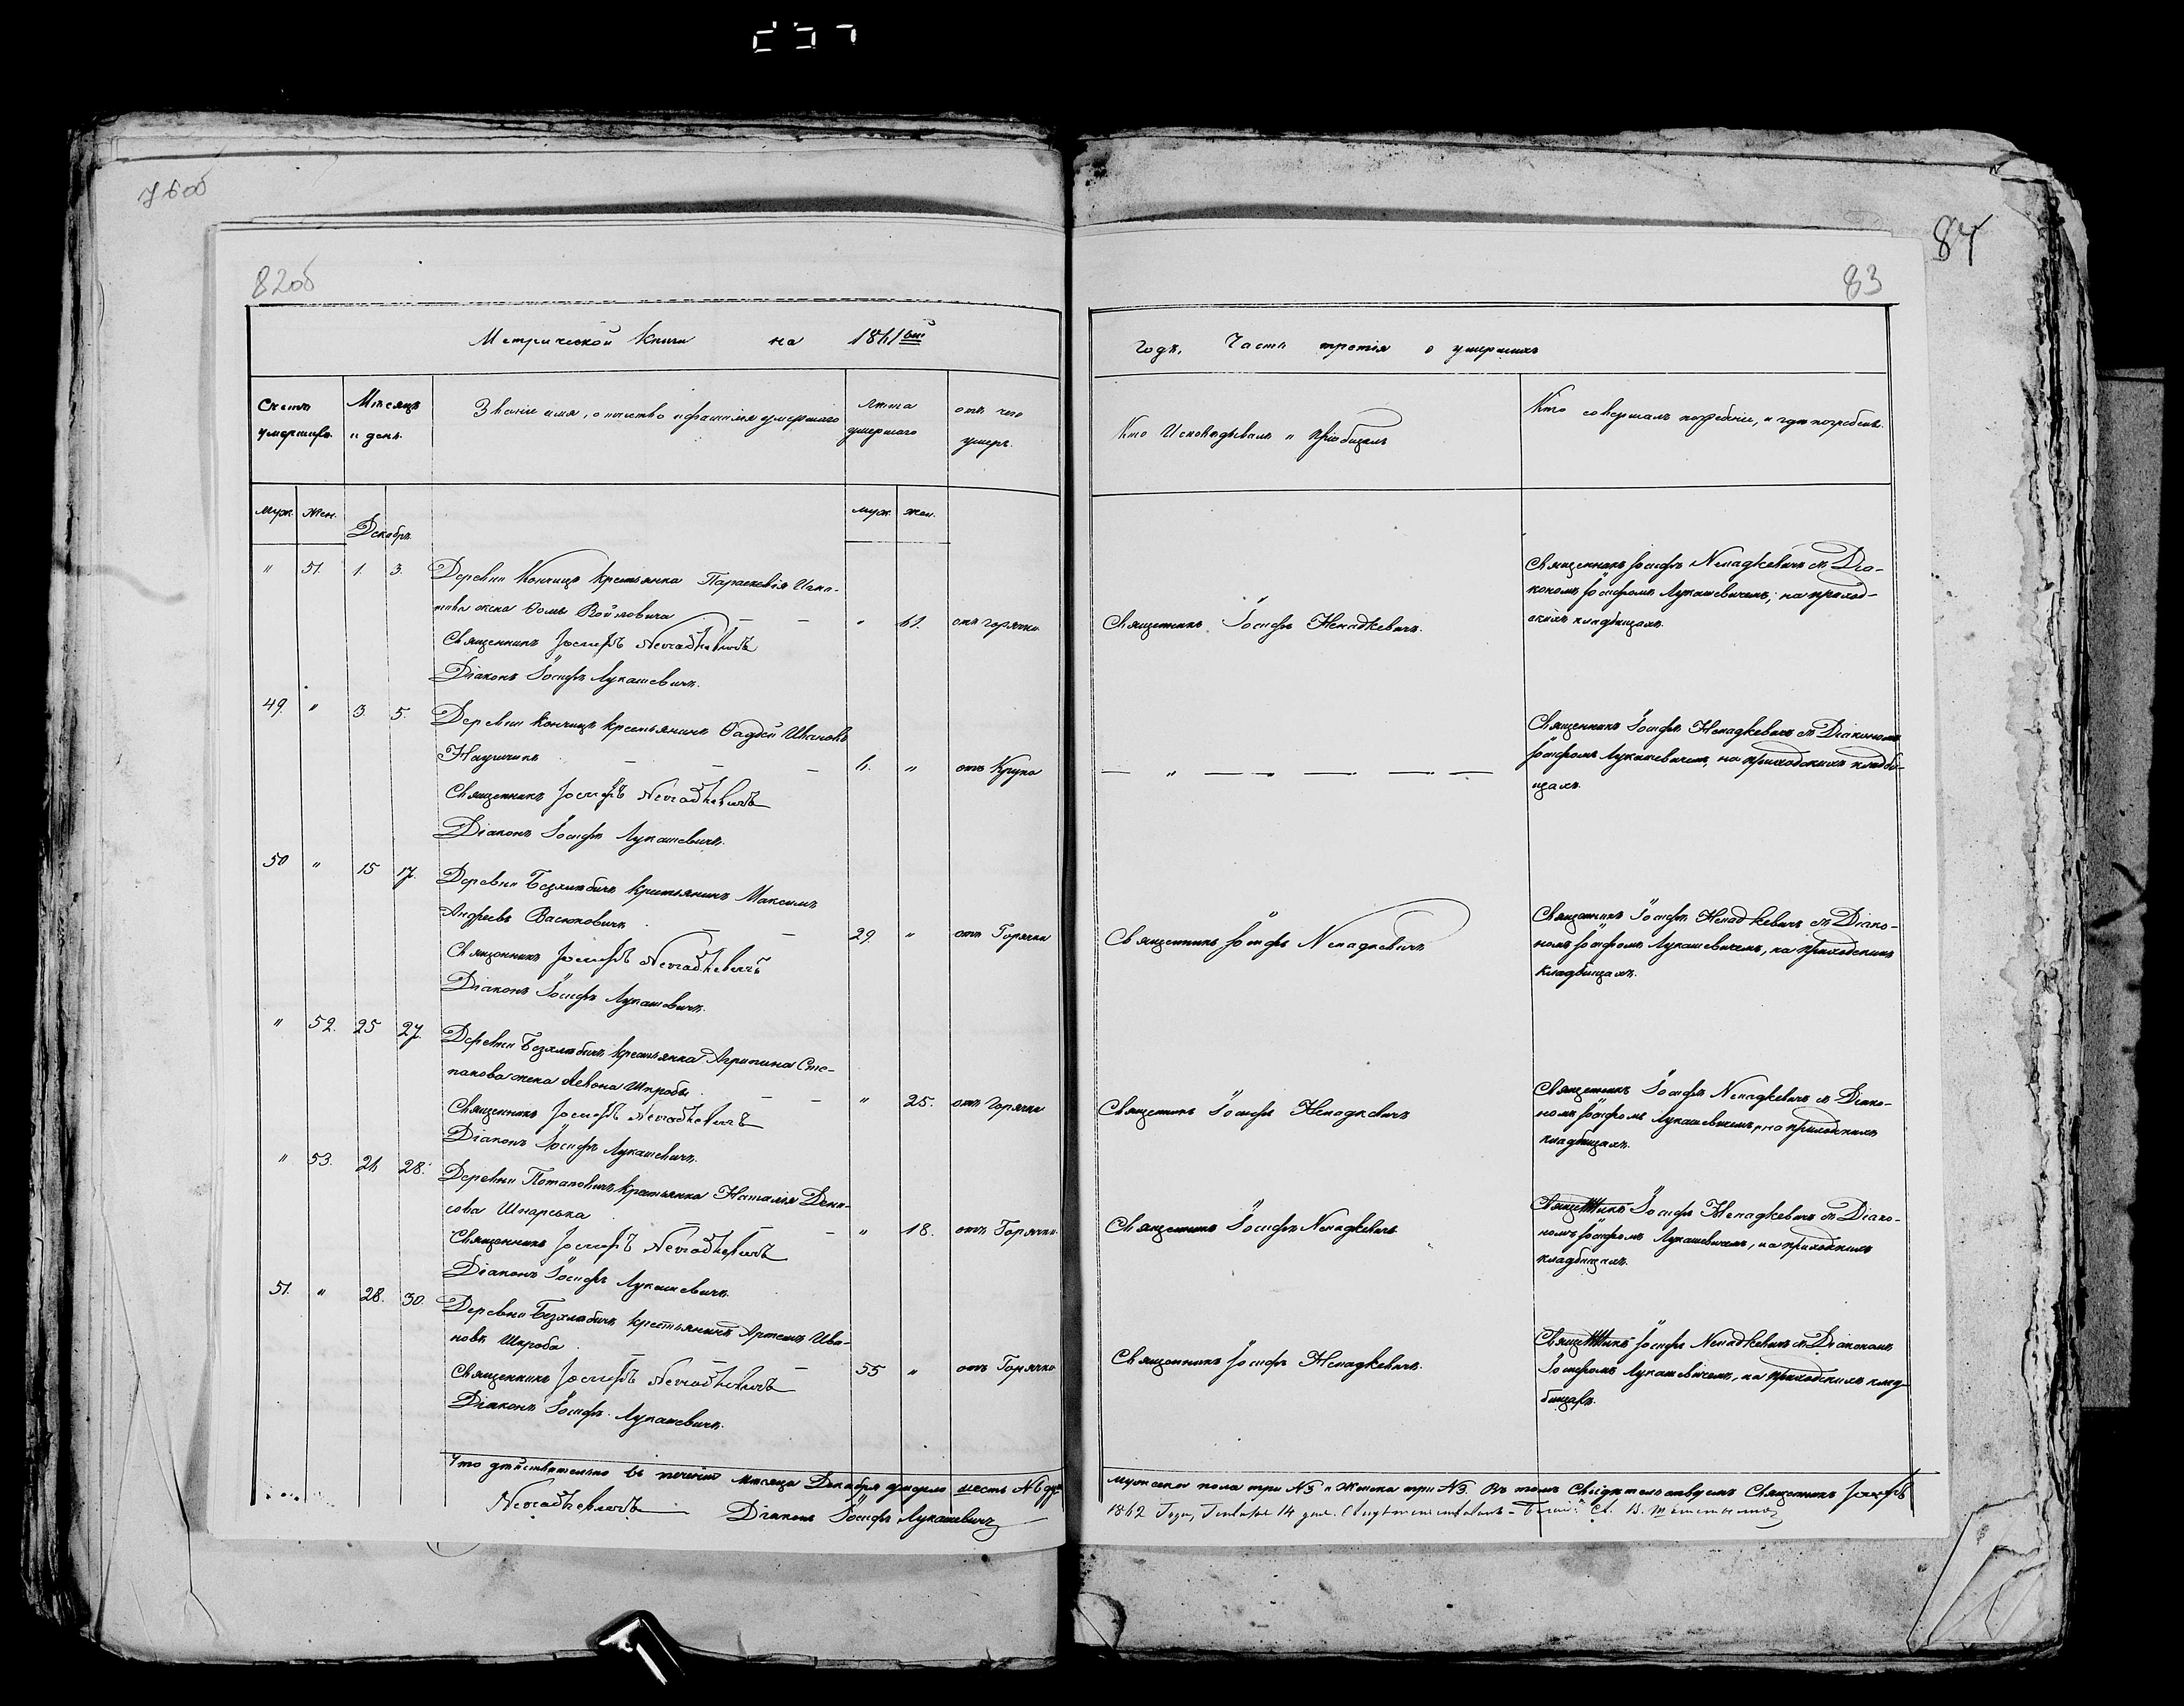 76об
84
82об
83
Метрической Книги на 1861ый
годъ, Часть третія о умершихъ
Счетъ умершихъ.
Мѣсяцъ и день.
Званіе имя, отчество и фамилія умершаго
Лѣта умершаго
отъ чего умеръ.
Кто Исповѣдывалъ и пріобщалъ
Кто совершалъ погребеніе, и гдѣ погребенъ.
муж. Жен.
Декабрь
муж. жен.
" 51. 1. 3. Деревни Кончицъ крестьянка Параскевія
жена Ѳомы Войтовича — — " 61. отъ горячки
Священникъ Іосифъ Ненадкевичъ
Діаконъ Іосифъ Лукашевичъ.
Священникъ Іосифъ Ненадкевичъ.
Священникъ Іосифъ Ненадкевичъ съ Діа-
кономъ Іосифомъ Лукашевичемъ, на приход-
скихъ кладбищахъ.
49. " 3. 5. Деревни Кончицъ крестьянинъ Ѳадей Ивановъ
— — — 6. " отъ Крупа
Священникъ Іосифъ Ненадкевичъ
Діаконъ Іосифъ Лукашевичъ.
— " — — — — —
Священникъ Іосифъ Ненадкевичъ съ Діакономъ
Іосифомъ Лукашевичемъ, на приходскихъ кладби-
щахъ.
50 " 15 17. Деревни Безхлѣбичъ крестьянинъ Максимъ
Андреевъ Васюковичъ — — 29. " отъ Горячки
Священникъ Іосифъ Ненадкевичъ
Діаконъ Іосифъ Лукашевичъ.
Священникъ Іосифъ Ненадкевичъ
Священникъ Іосифъ Ненадкевичъ съ Діако-
номъ Іосифомъ Лукашевичемъ, на приходскихъ
кладбищахъ.
" 52. 25 27. Деревни Безхлѣбичъ крестьянка Агрипина Сте-
панова жена Левона Шкробы. — — " 25. отъ Горячки
Священникъ Іосифъ Ненадкевичъ
Діаконъ Іосифъ Лукашевичъ.
Священникъ Іосифъ Ненадкевичъ
Священникъ Іосифъ Ненадкевичъ съ Діако-
номъ Іосифомъ Лукашевичемъ, на приходскихъ
кладбищахъ.
" 53. 26 28. Деревни Потаповичъ крестьянка Наталія Дени-
сова — — — " 18. отъ Горячки
Священникъ Іосифъ Ненадкевичъ
Діаконъ Іосифъ Лукашевичъ.
Священникъ Іосифъ Ненадкевичъ
Священникъ Іосифъ Ненадкевичъ съ Діако-
номъ Іосифомъ Лукашевичемъ, на приходскихъ
кладбищахъ.
51. " 28. 30. Деревни Безхлѣбичъ крестьянинъ Артемъ Ива-
новъ Шкроба. — — — 55 " отъ Горячки
Священникъ Іосифъ Ненадкевичъ
Діаконъ Іосифъ Лукашевичъ.
Священникъ Іосифъ Ненадкевичъ.
Священникъ Іосифъ Ненадкевичъ съ Діакономъ
Іосифомъ Лукашевичемъ, на приходскихъ клад-
бищахъ.
Что дѣйствительно въ теченіи мѣсяца Декабря умерло шесть №6 душъ
мужеска пола три №3 и Женска три №3. Въ томъ Свидѣтельствуемъ Священникъ Іосифъ
Ненадкевичъ Діаконъ Іосифъ Лукашевичъ
1862 Года, Генваря 14 дня. Свидѣтельствовалъ – Благ. Св. В.